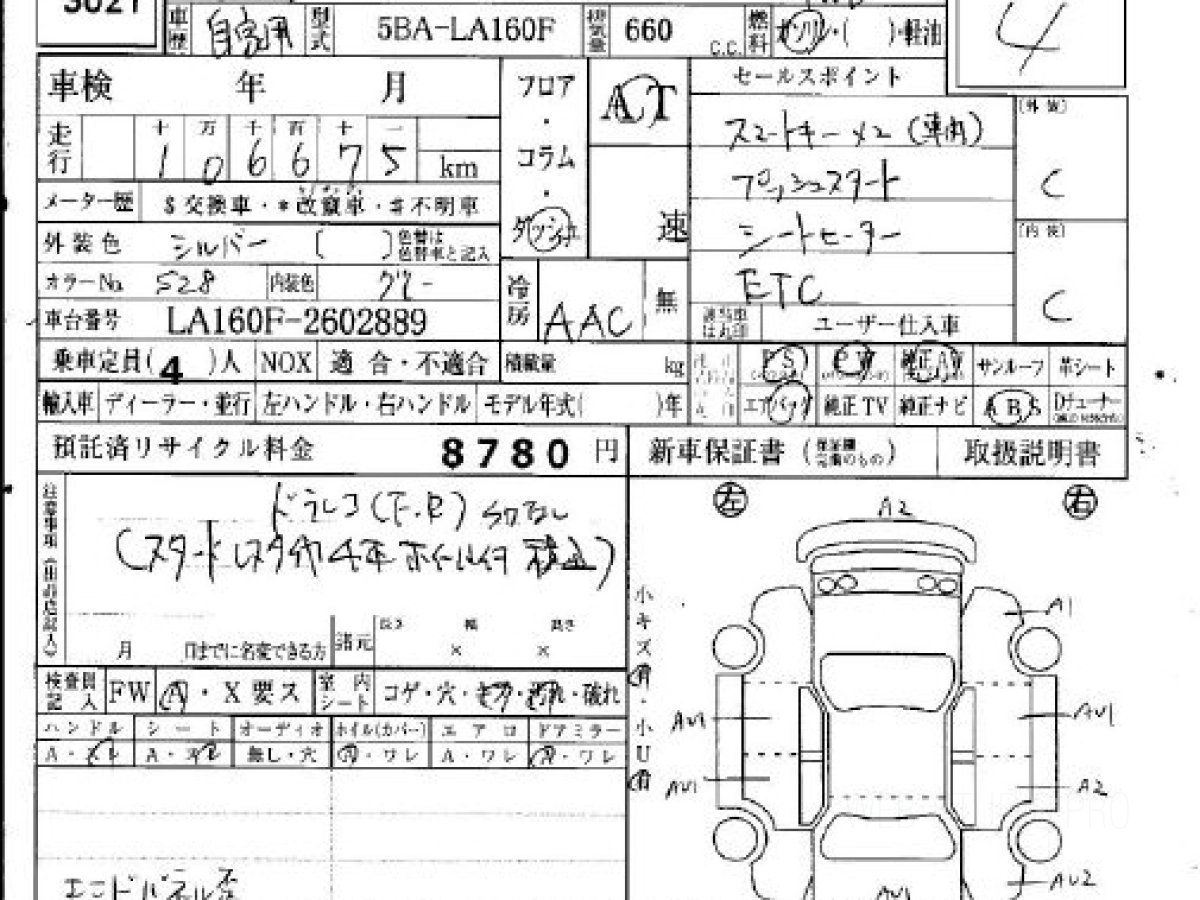 3021
車歴 自家用 型式 5BA-LA160F 排気量 660 C.C. 燃料 ガソリン・( )・軽油
4
車検 年 月
フロア・コラム・ダッシュ
AT
速
セールスポイント
スマートキーメロ (車内)
プッシュスタート
シートヒーター
ETC
ユーザー仕入車
[外装]
C
[内装]
C
走行 十 万 千 百 十 一
1 0 6 6 7 5 km
メーター歴 $交換車・*改竄車・#不明車
外装色 シルバー ( ) 色替は色替車と記入
カラーNo. 528 内装色 グレー
冷房 AAC 無
車台番号 LA160F-2602889
乗車定員( 4 )人 NOX 適合・不適合 積載量 kg
PS PW 純正AW サンルーフ 革シート
輸入車 ディーラー・並行 左ハンドル・右ハンドル モデル年式( )年
エアバック 純正TV 純正ナビ ABS Dチューナー
預託済リサイクル料金 8780 円
新車保証書 ( ) 取扱説明書
注意事項(出品店記入)
ドラレコ(F.R) SDなし
(スタッドレスタイヤ4本 ホイール付 積込)
月 日までに名変できる方 諸元 長さ × 幅 × 高さ
検査員記入 FW A・X要ス 室内シート コゲ・穴・キズ・汚れ・破れ
ハンドル シート オーディオ ホイル(カバー) エアロ ドアミラー
A・スレ A・スレ 無し・穴 A・ワレ A・ワレ A・ワレ
エンドパネル歪
左 右
小キズ有・小U有
A2
A1
AU1
AU1
AU1
A2
AU2
AU1